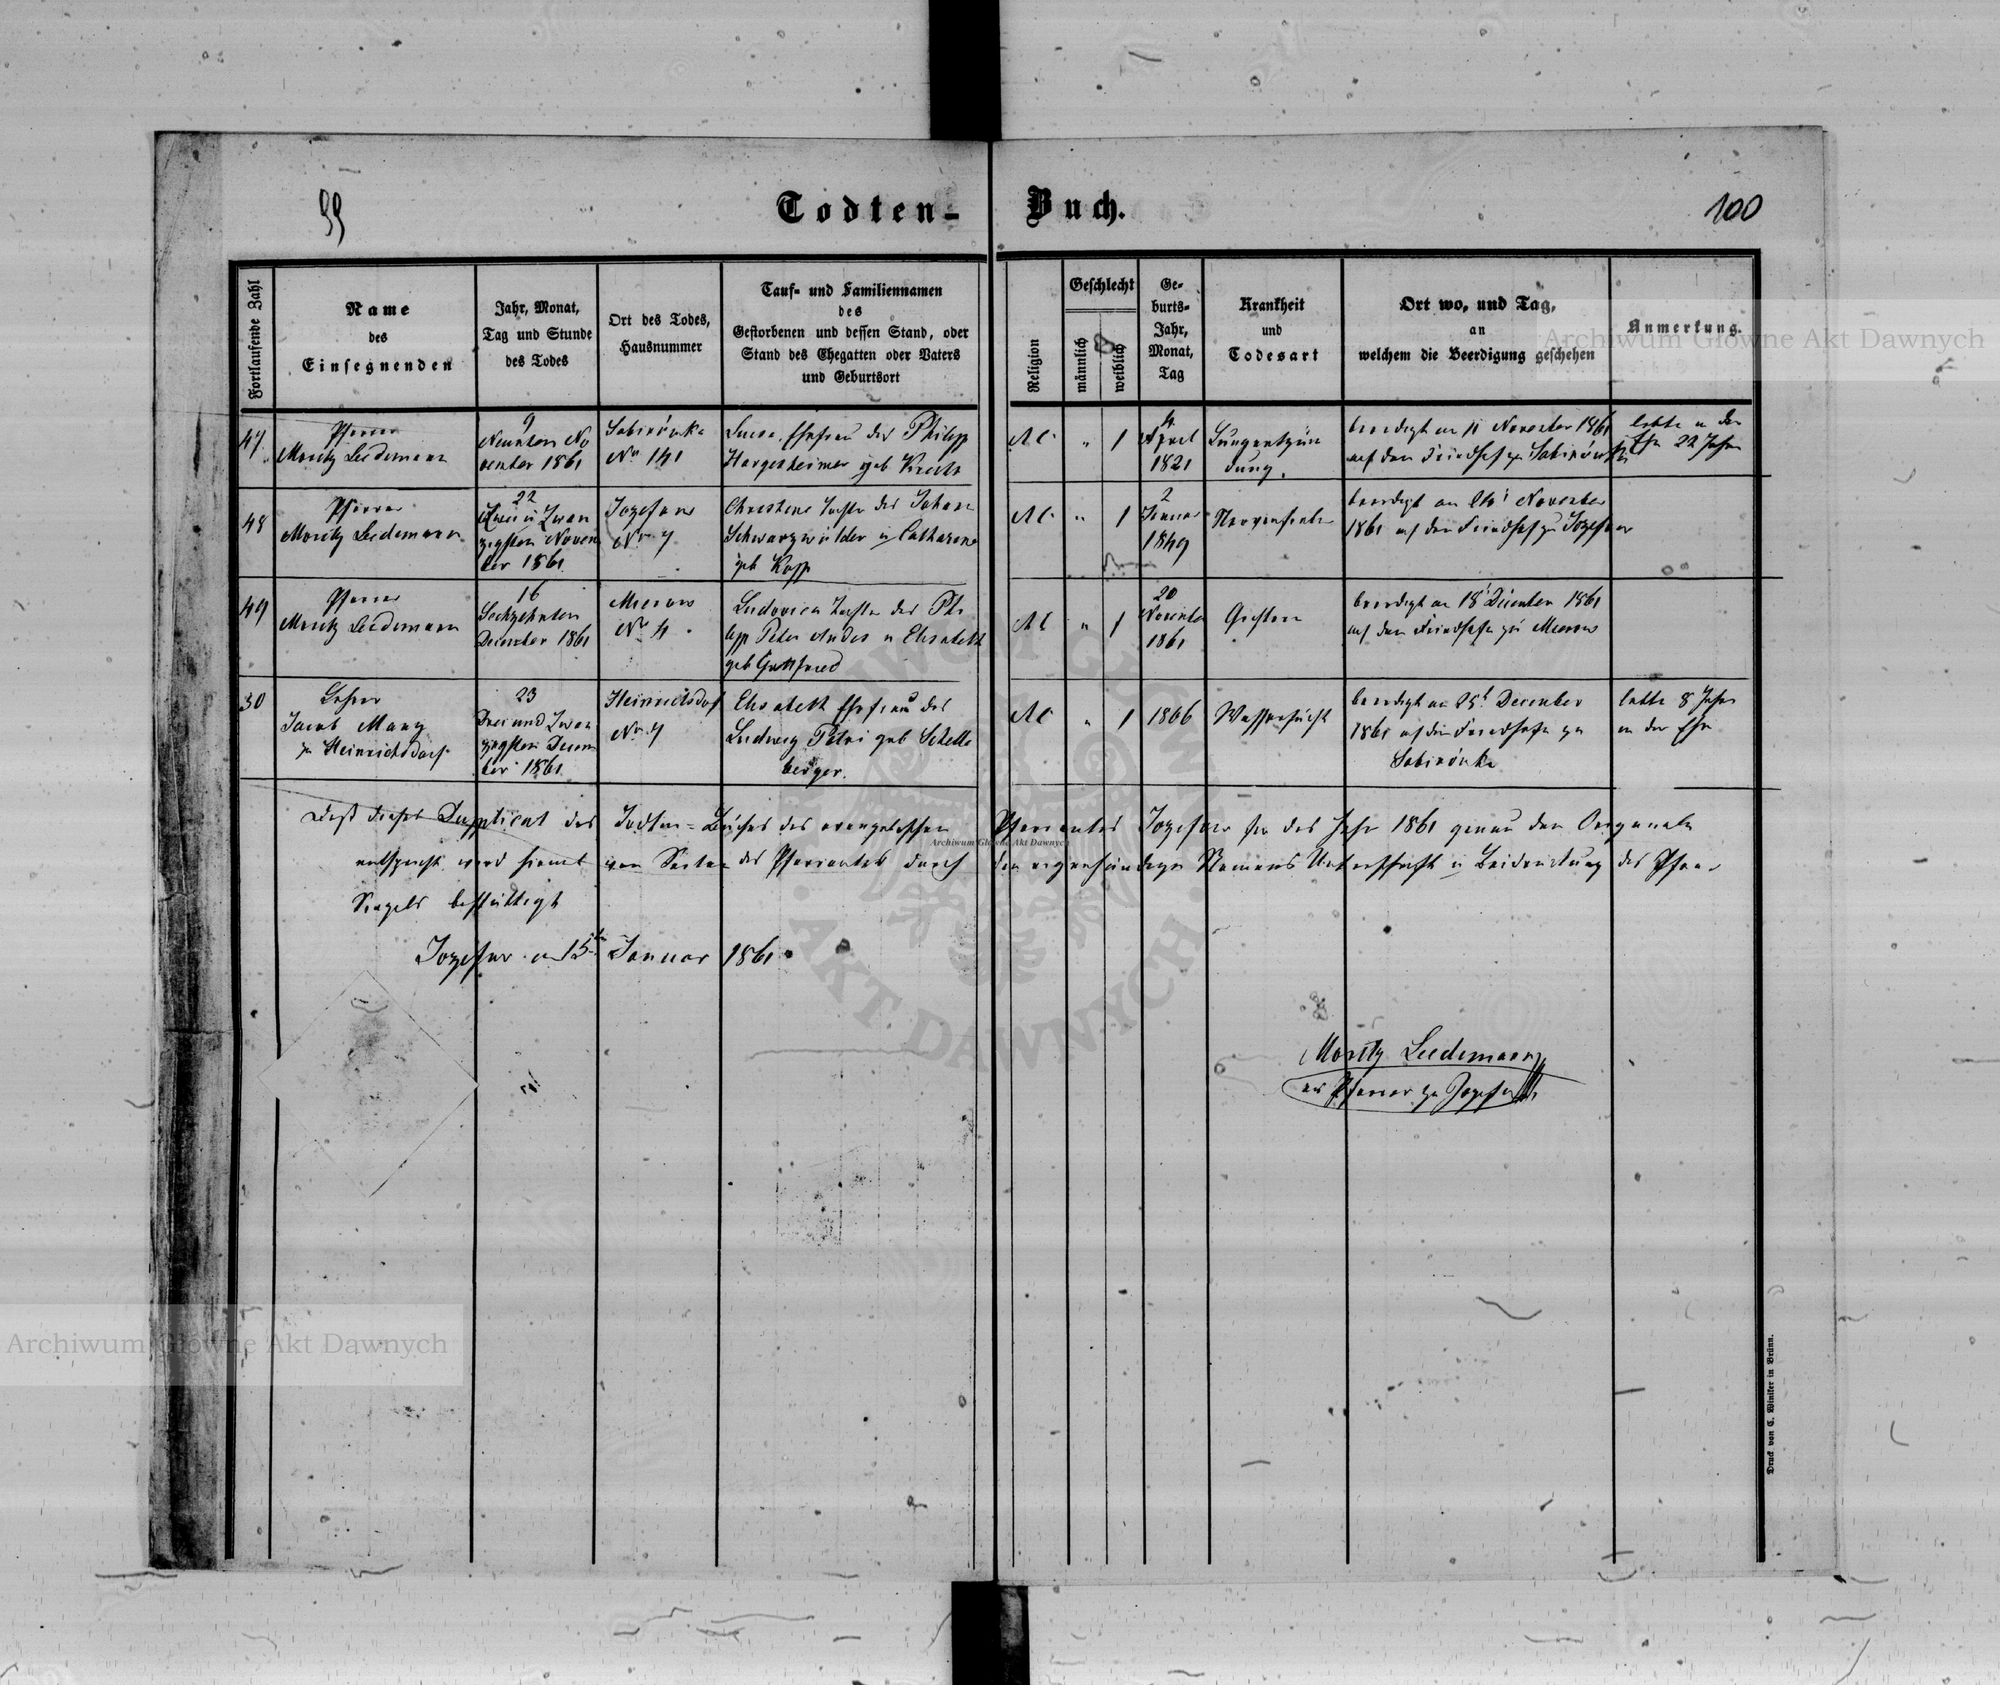 99
Todten-Buch.
100
Fortlaufende Zahl
Name
des
Einsegnenden
Jahr, Monat,
Tag und Stunde
des Todes
Ort des Todes,
Hausnummer
Tauf- und Familiennamen
des
Gestorbenen und dessen Stand, oder
Stand des Ehegatten oder Vaters
und Geburtsort
Religion
Geschlecht
männlich
weiblich
Ge-
burts-
Jahr,
Monat,
Tag
Krankheit
und
Todesart
Ort wo, und Tag,
an
welchem die Beerdigung geschehen
Anmerkung.
47
Pfarrer
Moritz Leedemann
9
Neunten No
vember 1861
Sabinówka
No 141
Luisa Ehefrau des Philipp
Hargesheimer geb
AC
"
1
4
April
1821
Lungenentzün
dung.
beerdigt am 11 November 1861
auf dem Friedhof zu Sabinówka
lebte in der
Ehe 22 Jahre
48
Pfarrer
Moritz Leedemann
22
Zwei u Zwan
zigsten Novem
ber 1861
Jozefow
No 7
Christine Tochter des Johann
Schwarzwälder u Catharina
geb Kopp
AC
"
1
2
Januar
1849
Nervenfieber
beerdigt am 24t November
1861 auf dem Friedhof zu Jozefow
49
Pfarrer
Moritz Leedemann
16
Sechzehnten
December 1861
Mierow
No 4
Ludovica Tochter des Phi
lipp Peter Andes u Elisabeth
geb Gottfried
AC
"
1
20
November
1861
beerdigt am 18t December 1861
auf dem Friedhofe zu Mierow
50
Lehrer
Jacob Manz
zu Heinrichsdorf
23
Drei und Zwan
zigsten Decem
ber 1861
Heinrichsdorf
No 7
Elisabeth Ehefrau des
Ludwig Petri geb Schelle
berger.
AC
"
1
1806
Wassersucht
beerdigt am 25t December
1861 auf dem Friedhofe zu
Sabinówka
lebte 8 Jahre
in der Ehe
Daß dieses Duplicat des Todten-Buches des evangelischen Pfarramtes Jozefow für das Jahr 1861 genau dem Originale
entspricht wird hiemit von Seiten des Pfarramtes durch den eigenhändigen Namens Unterschrift u Beidrückung des Pfarr
Siegels bestättigt
Jozefow am 15ten Januar 1861
Moritz Leedemann
Pfarrer zu Jozefow
Druck von C. Winiker in Brünn.
Archiwum Główne Akt Dawnych
Archiwum Główne Akt Dawnych
Archiwum Główne Akt Dawnych
AKT DAWNYCH